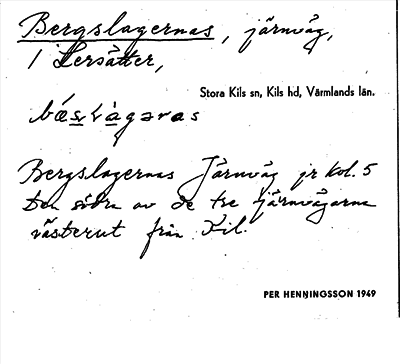 Bergslagernas, järnväg,
i Lersätter,
Stora Kils sn, Kils hd, Värmlands län.
Bergslagernas Järnväg jr kol. 5
Den södra av de tre järnvägarna
västerut från Kil.
PER HENNINGSSON 1949